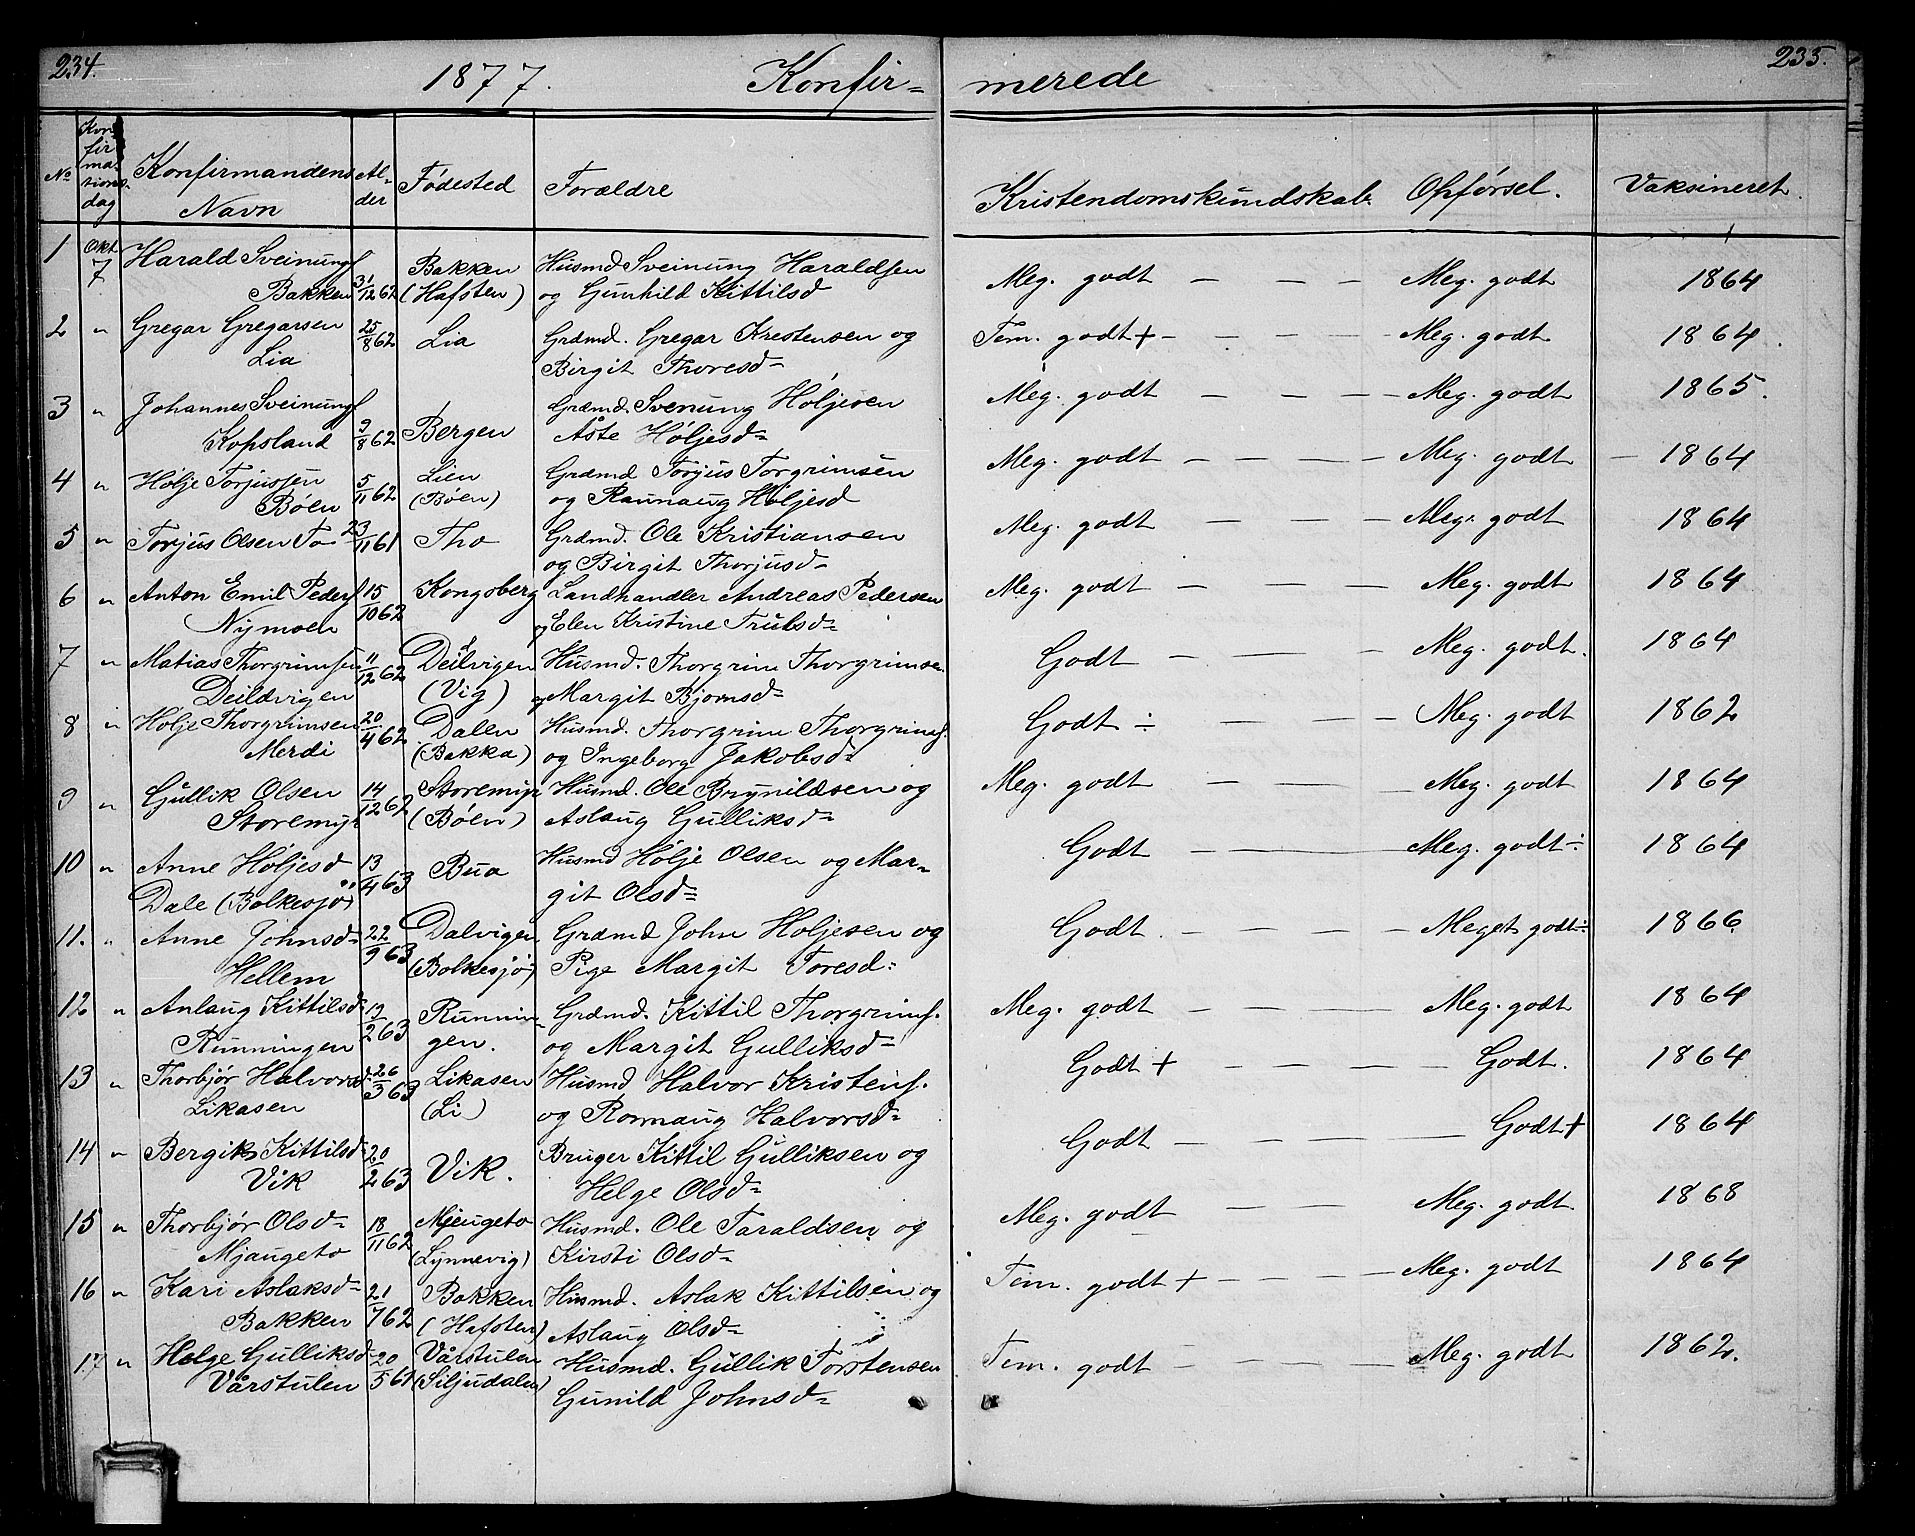 234. 1877. Konfir= merede 235.
No Konfirmationsdag Konfirmandens Navn Alder Fødested Forældre Kristendomskundskab Opførsel. Vaksineret.
1 Okt. 7 Harald Sveinungs. Husmd Sveinung Haraldsen
Bakken 31/12 62 Bakken (Hafsten) og Gunhild Kittilsd Meg. godt — — — Meg. godt 1864
2 " Gregar Gregarsen 25/8 62 Lia Grdmd. Gregar Krestensen og Tem. godt + - - - - Meg. godt 1864.
Lia Birgit Thoresd=
3 " Johannes Sveinungs. Grdmd. Svenung Høljesen Meg. godt — — — — Meg. godt 1865.
Kopsland 9/8 62 Bergen Åste Høljesd=
4 " Hølje Torjussen 5/11 62 Lien Grdmd Torjus Torgrimsen Meg. godt — — — — Meg. godt — 1864
Bøen (Bøen) og Raunaug Høljesd
5 " Torjus Olsen To 23/11 61 Tho Grdmd. Ole Kristiansen Meg. godt — — — Meg. godt 1864
og Birgit Thorjusd=
6 " Anton Emil Peders. 15/10 62 Kongsberg Landhandler Andreas Pedersen Meg. godt — — — Meg. godt 1864
Nymoen og Elen Kristine Trulsd=
7 " Matias Thorgrimsen 11/12 62 Deilvigen Husmd. Thorgrim Thorgrimsen Godt — — — — Meg. godt. 1864
Deildvigen (Vig) og Margit Bjornsd=
8 " Holje Thorgrimsen 20/4 62 Dalen Husmd. Thorgrim Thorgrims. Godt ÷ — — — Meg. godt 1862
Merdi (Bakka) og Ingeborg Jakobsd=
9 " Gullik Olsen 14/12 62 Storemyr Husmd. Ole Brynildsen og Meg. godt — — — Meg. godt 1864
Storemyr (Bøen) Aslaug Gulliksd=
10 " Anne Høljesd 13/4 63 Bua Husmd Hølje Olsen og Mar- Godt — — — Meg. godt ÷ 1864
Dale (Bolkesjø) git Olsd=
11. " Anne Johnsd= 22/9 63 Dalvigen Grdmd John Holjesen og Godt. — — — Meget godt ÷ 1866
Hellem (Bolkesjø) Pige Margit Toresd=
12 " Anlaug Kittilsd= 19/2 63 Runnin- Grdmd. Kittil Thorgrims. Meg. godt — — — Meg. godt 1864
Runningen gen. og Margit Gulliksd=
13 " Thorbjør Halvorsd= 26/3 63 Likasen Husmd Halvor Kristens. Godt + — — — Godt. 1864
Likasen (Li) og Ronnaug Halvorsd=
14 " Bergit Kittilsd= 20/2 63 Vik. Bruger Kittil Gulliksen og Godt — — — — Godt + 1864
Vik Helge Olsd=
15 " Thorbjør Olsd= 18/11 62 Mjeugeto Husmd. Ole Taraldsen og Meg. godt — — — Meg. godt 1868
Mjaugeto (Lynnevig) Kirsti Olsd=
16 " Kari Aslaksd= 21/7 62 Bakken Husmd. Aslak Kittilsen og Tem. godt + — — — — Meg. godt 1864
Bakken (Hafsten) Aslaug Olsd=
17 " Helge Gulliksd= 20/5 61 Vårstulen Husmd. Gullik Torstensen Tem. godt — — — Meg. godt 1862.
Vårstulen (Siljudalen) Gunild Johnsd=